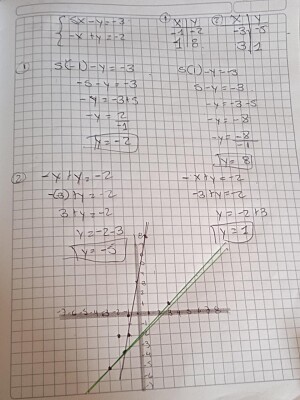 5x - y = -3
-x + y = -2
① X | Y
-1 | -2
1 | 8
② X | Y
-3 | -5
3 | 1
① 5(-1) - y = -3
-5 - y = -3
-y = -3+5
-y = 2/-1
y = -2
5(1) - y = -3
5 - y = -3
-y = -3-5
-y = -8
-y = -8/-1
y = 8
② -x + y = -2
-(3) + y = -2
3 + y = -2
y = -2-3
y = -5
-x + y = -2
-3 + y = -2
y = -2+3
y = 1